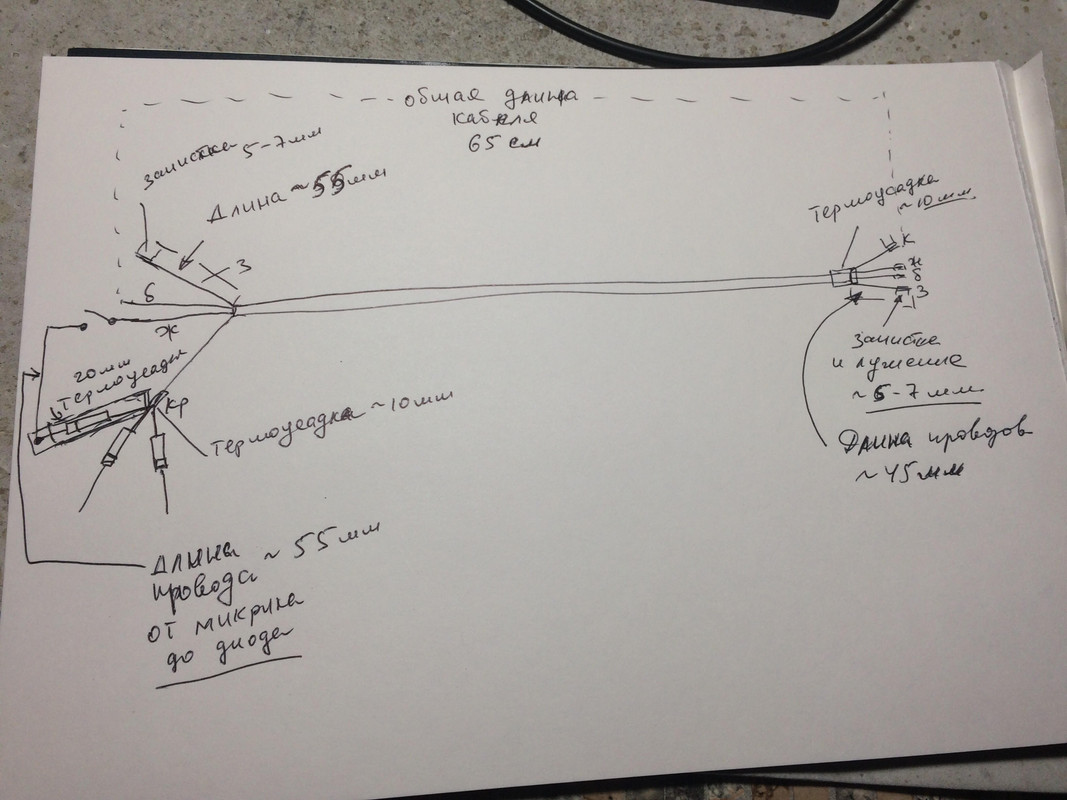 общая длина
кабеля
65 см
зачистка 5-7мм
Длина ~55мм
З
б
ж
20мм
термоусадка
Кр
Термоусадка ~10мм
Длина
провода ~ 55мм
от микрика
до диода
Термоусадка
~10мм
К
ж
б
З
зачистка
и лужение
~5-7мм
Длина проводов
~45мм